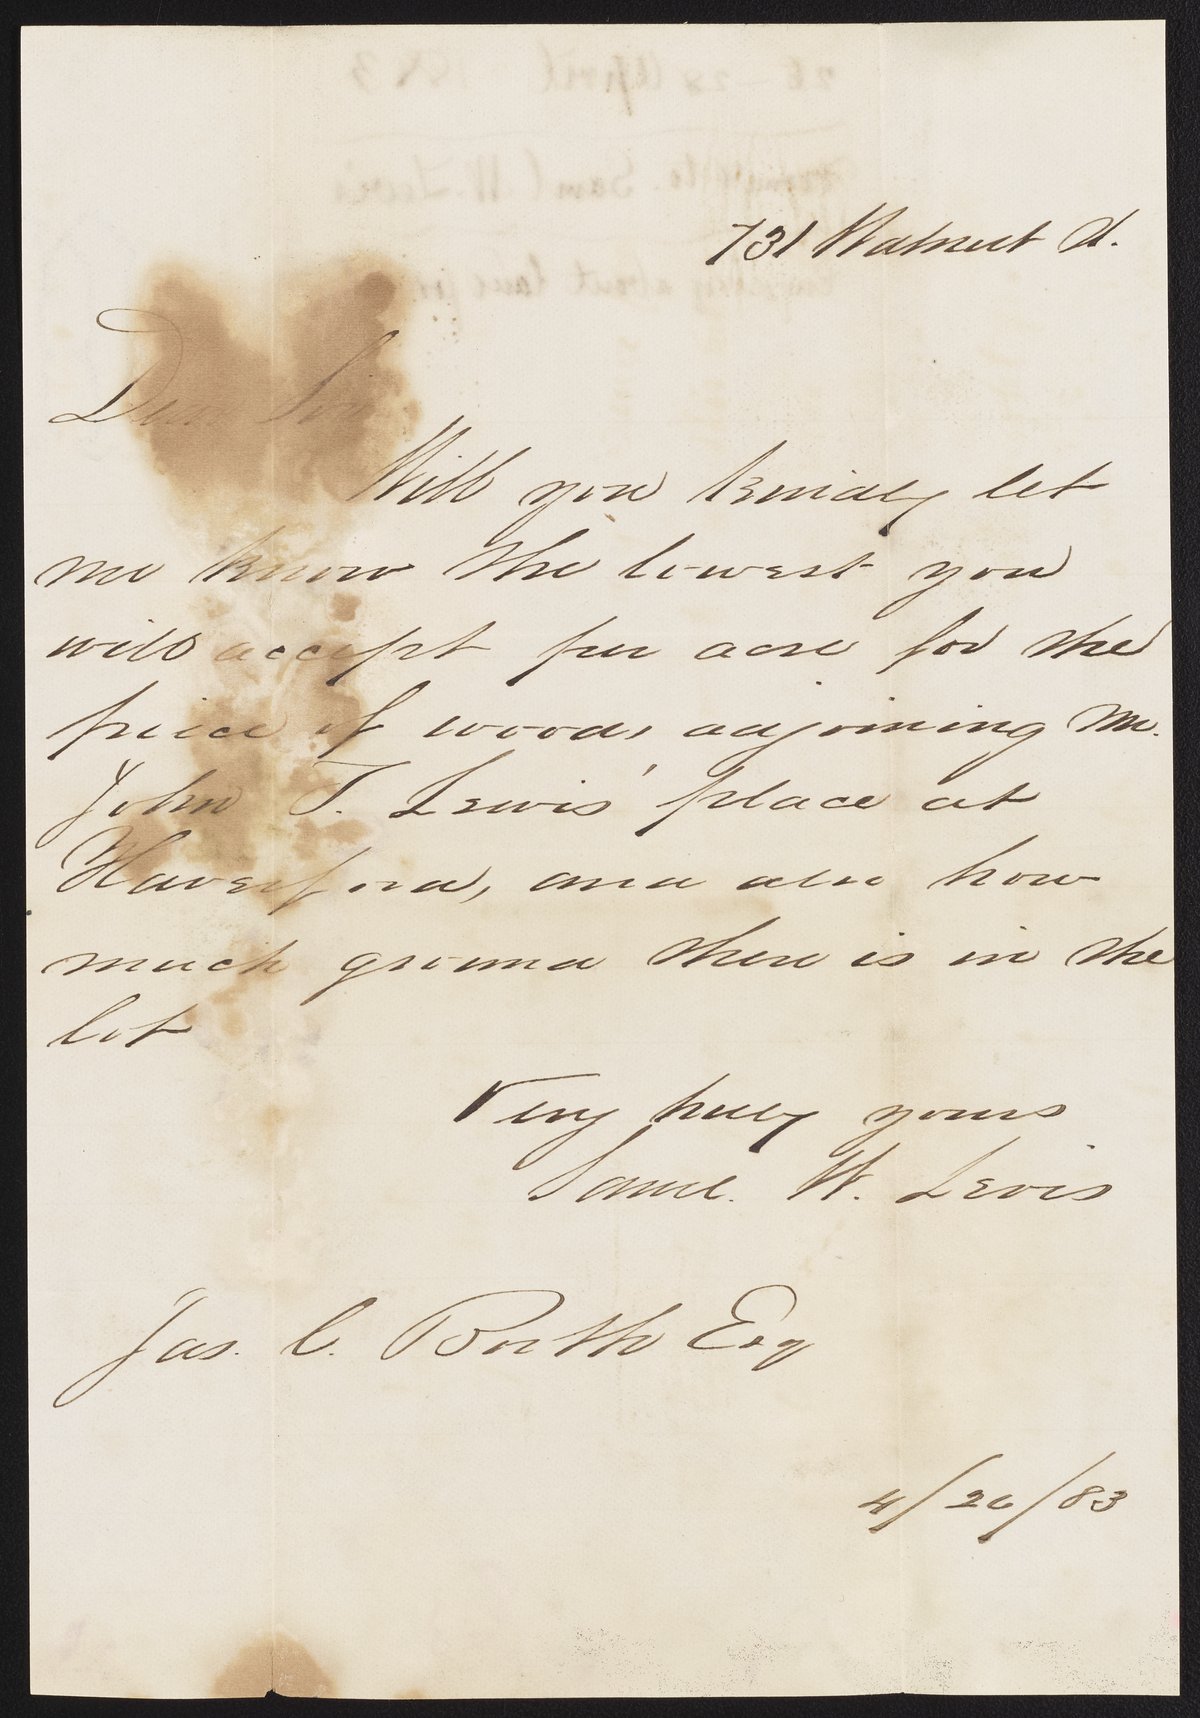 731 Walnut St.
Dear Sir
Will you kindly let
me know the lowest you
will accept per acre for the
piece of woods adjoining Mr.
John T. Lewis' place at
Haverford, and also how
much ground there is in the
lot
Very truly yours
Saml. W. Levis
Jas. C. Booth Esq
4/26/83